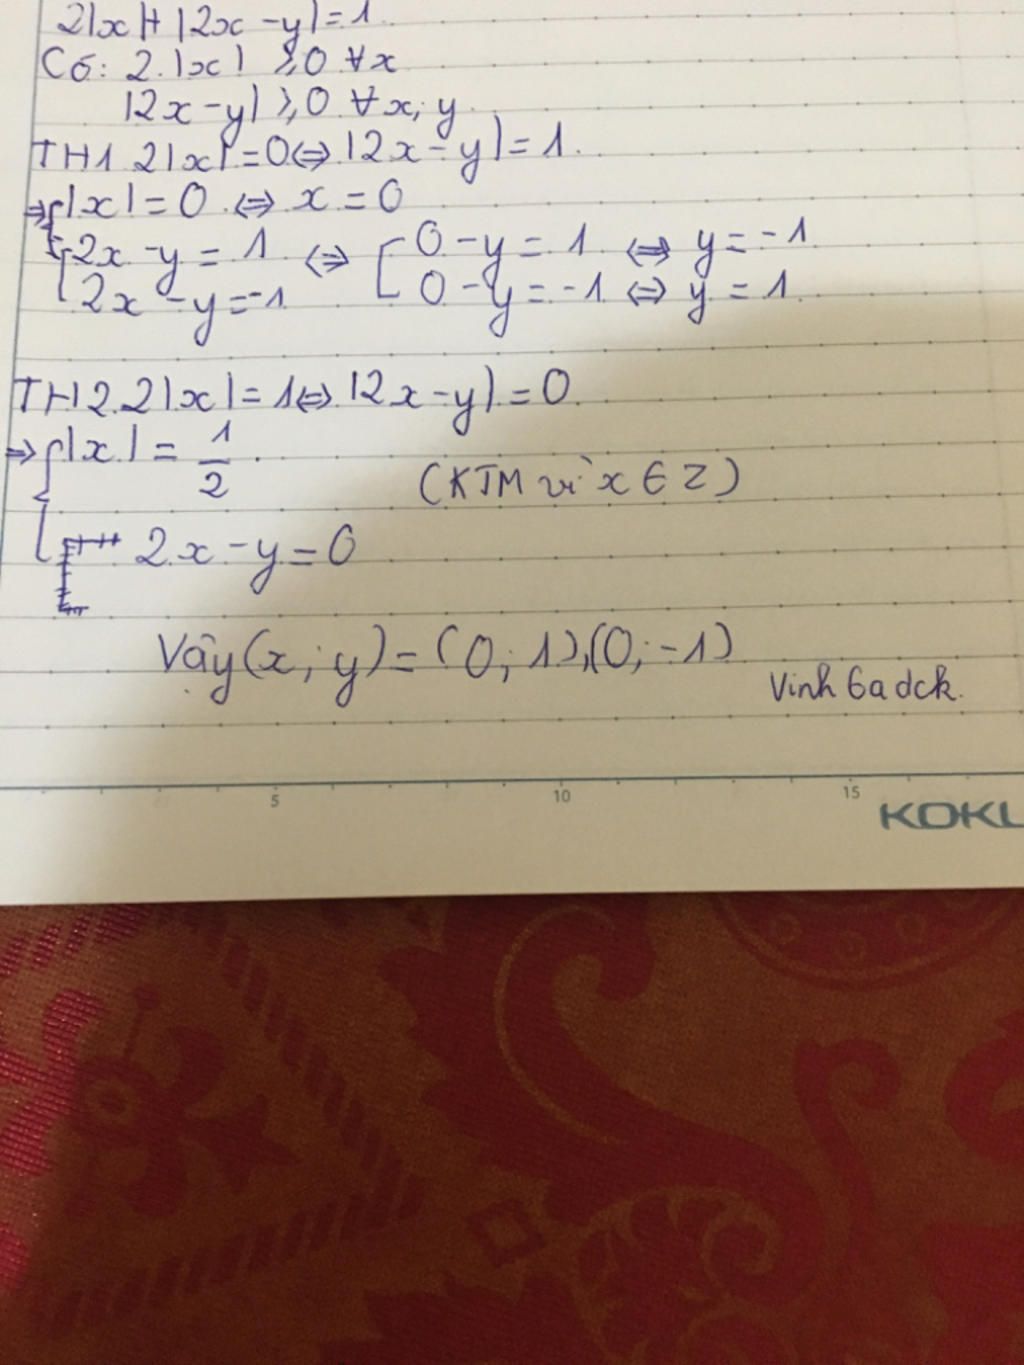 2|x|+|2x-y|=1.
Có: 2.|x| ≥0 ∀x
|2x-y| ≥0 ∀x; y
TH1 2|x|=0⇔ |2x-y|=1.
⇒|x|=0 ⇔ x=0
2x-y=1 ⇔ 0-y=1 ⇔ y=-1
2x-y=-1 0-y=-1 ⇔ y=1.
TH2.2|x|=1⇔ |2x-y|=0.
⇒|x|=1/2.
(KTM vì x∈Z)
2x-y=0
Vây(x;y)=(0;1),(0;-1)
Vinh 6a dck.
5 10 15
KOKU